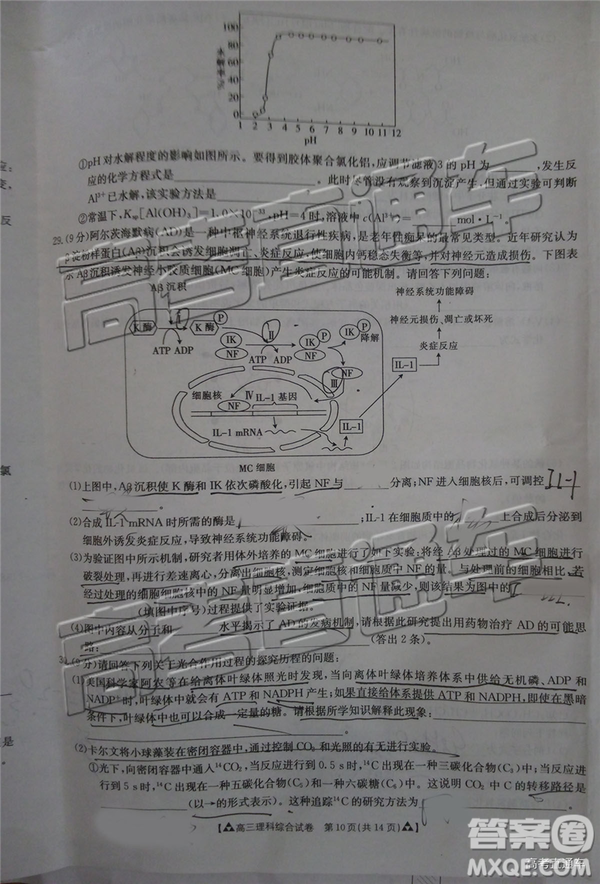 100
80
60
40
20
0
水解率%
1 2 3 4 5 6 7 8 9 10 11 12
pH
①pH对水解程度的影响如图所示。要得到胶体聚合氯化铝,应调节滤液3的pH为 ,发生反
应的化学方程式是 。此时尽管没有观察到沉淀产生,但通过实验可判断
Al³⁺已水解,该实验方法是
②常温下,Ksp[Al(OH)₃]=1.0×10⁻³³,pH=4时,溶液中c(Al³⁺)= mol·L⁻¹。
29.(9分)阿尔茨海默病(AD)是一种中枢神经系统退行性疾病,是老年性痴呆的最常见形式。近年研究认为
β淀粉样蛋白(Aβ)沉积会诱发细胞凋亡、炎症反应、使细胞内钙稳态失衡等,并对神经元造成损伤。下图表
示Aβ沉积诱发神经小胶质细胞(MC细胞)产生炎症反应的可能机制。请回答下列问题:
Aβ沉积
K酶 Ⅰ K酶 P
ATP ADP
Ⅱ
IK NF
ATP ADP
IK P NF
IK P 降解
NF
Ⅲ
细胞核 Ⅳ IL-1基因
NF
IL-1 mRNA
IL-1
IL-1
神经系统功能障碍
神经元损伤、凋亡或坏死
炎症反应
MC细胞
(1)上图中,Aβ沉积使K酶和IK依次磷酸化,引起NF与 分离;NF进入细胞核后,可调控 IL-1
(2)合成IL-1 mRNA时所需的酶是 ;IL-1在细胞质中的 上合成后分泌到
细胞外诱发炎症反应,导致神经系统功能障碍。
(3)为验证图中所示机制,研究者用体外培养的MC细胞进行了如下实验,将经Aβ处理过的MC细胞进行
破裂处理,再进行差速离心,分离出细胞核,测定细胞核和细胞质中NF的量,与处理前的细胞相比,若
经过处理的细胞细胞核中的NF量明显增加,细胞质中的NF量减少,则该结果为图中的
(填图中序号)过程提供了实验证据。
(4)图中内容从分子和 水平揭示了AD的发病机制。请根据此研究提出用药物治疗AD的可能思
路: (答出2条)。
(9分)请回答下列关于光合作用过程的探究历程的问题:
(1)美国科学家阿农等在给离体叶绿体照光时发现,当向离体叶绿体培养体系中供给无机磷、ADP和
NADP⁺时,叶绿体中就会有ATP和NADPH产生;如果直接给体系提供ATP和NADPH,即使在黑暗
条件下,叶绿体中也可以合成一定量的糖。请根据所学知识解释此现象:
(2)卡尔文将小球藻装在密闭容器中,通过控制CO₂和光照的有无进行实验。
①光下,向密闭容器中通入¹⁴CO₂,当反应进行到0.5 s时,¹⁴C出现在一种三碳化合物(C₃)中;当反应进
行到5 s时,¹⁴C出现在一种五碳化合物(C₅)和一种六碳糖(C₆)中。这说明CO₂中C的转移路径是
(以→的形式表示)。这种追踪¹⁴C的研究方法为
高三理科综合试卷 第10页(共14页)
高考直通车
高考直通车
高考直通车
答案圈
高考直通车